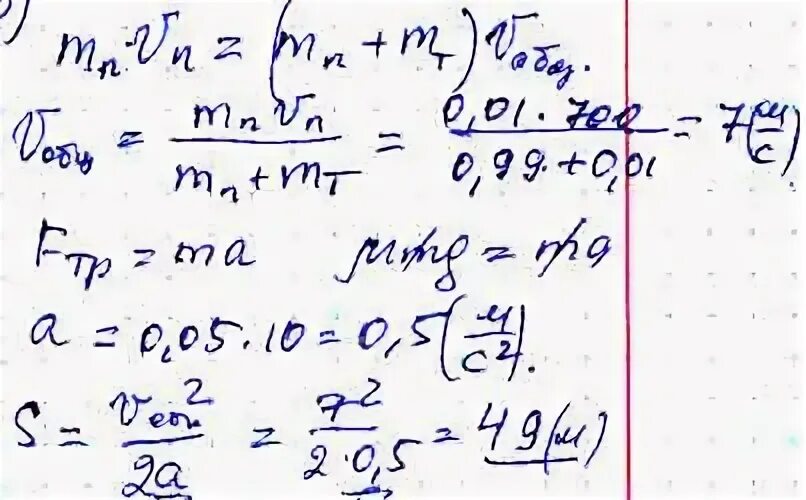 )
mп·Vп = (mп + mт)Vобщ.
Vобщ = mп Vп / mп + mт = 0,01·700 / 0,99.+0,01 = 7(м/с)
Fтр = ma μmg = ma
a = 0,05·10 = 0,5(м/с²).
S = Vобщ² / 2a = 7² / 2·0,5 = 49(м)